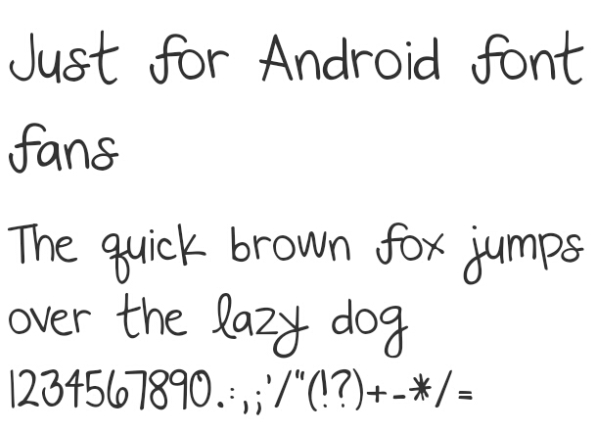 Just for Android font
fans
The quick brown fox jumps
over the lazy dog
1234567890.:,;'/"(!?)+-*/=